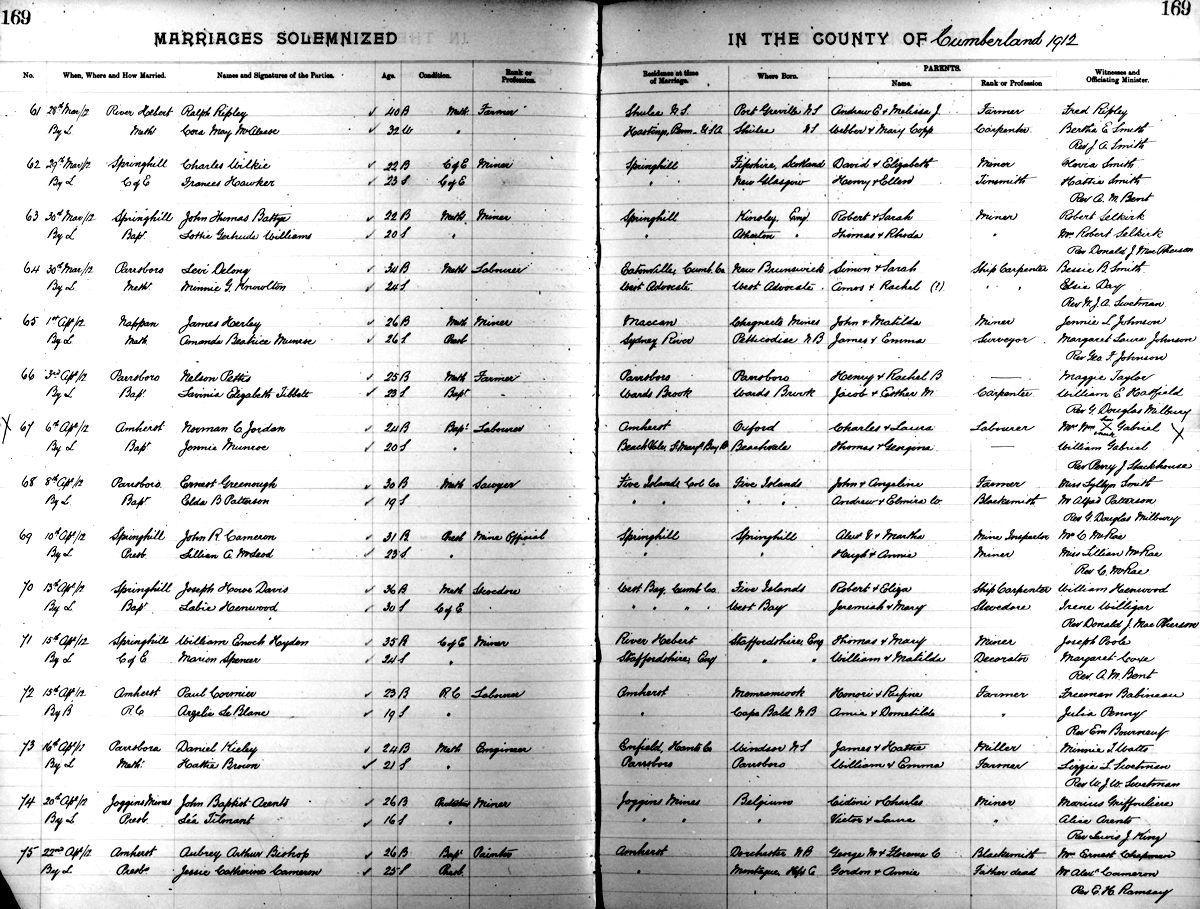 169 169
MARRIAGES SOLEMNIZED IN THE COUNTY OF Cumberland 1912
No. When, Where and How Married. Names and Signatures of the Parties. Age. Condition. Rank or Profession. Residence at time of Marriage. Where Born. PARENTS. Name. Rank or Profession Witnesses and Officiating Minister.
61 28th Mar/12 River Hebert Ralph Ripley 40 B Meth. Farmer Shulee N.S. Port Greville N.S Andrew E & Melissa J. Farmer Fred Ripley
By L Meth. Cora May McAleese 32 W " Hastings, Penn. U.S.A Shulee N.S Webber & Mary Copp Carpenter Bertha E Smith
Rev J. A. Smith
62 29th Mar/12 Springhill Charles Wilkie 22 B C of E Miner Springhill Fifeshire, Scotland David & Elizabeth Miner Smith
By L C of E Frances Hawker 23 S C of E " New Glasgow Henry & Ellen Tinsmith Hattie Smith
Rev A. M. Bent
63 30th Mar/12 Springhill John Thomas Battye 22 B Meth. Miner Springhill Kinsley, Eng Robert & Sarah Miner Robert Selkirk
By L Bapt. Lottie Gertrude Williams 20 S " " Atherton " Thomas & Rhoda " Mrs Robert Selkirk
Rev Donald J. MacPherson
64 30th Mar/12 Parrsboro Levi Delong 34 B Meth. Labourer Eatonville, Cumb. Co New Brunswick Simon & Sarah Ship Carpenter Bessie B. Smith
By L Meth. Minnie G. Knowlton 24 S West Advocate West Advocate Amos & Rachel (?) " " Elsie Day
Rev W. J. A. Swetman
65 1st Apl/12 Nappan James Herley 26 B Meth Miner Maccan Chegnecto Mines John & Matilda Miner Jennie L Johnson
By L Meth Amanda Beatrice Munroe 26 S Presb Sydney River Petticodiac N B James & Emma Surveyor Margaret Laura Johnson
Rev Geo. F. Johnson
66 3rd Apl/12 Parrsboro Nelson Pettis 25 B Meth Farmer Parrsboro Parrsboro Henry & Rachel B — Maggie Taylor
By L Bapt. Lavinia Elizabeth Tibbets 23 S Bapt. Wards Brook Wards Brook Jacob & Esther M Carpenter William E Hatfield
Rev G. Douglas Milbury
X 67 6th Apl/12 Amherst Norman C. Jordan 24 B Bapt. Labourer Amherst Oxford Charles & Laura Labourer Mrs Wm her X mark Gabriel X
By L Bapt. Jennie Munroe 20 S " Beachvale, Beachvale Thomas & Georgina — William Gabriel
Rev Perry J. Stackhouse
68 8th Apl/12 Parrsboro Ernest Greenough 30 B Meth Sawyer Five Islands Col. Co Five Islands John & Angeline Farmer Miss Smith
By L Bapt. Elda B Patterson 19 S " " " " Andrew & Elmira W. Blacksmith Mr Alfred Patterson
Rev G. Douglas Milbury
69 10th Apl/12 Springhill John R. Cameron 31 B Presb. Mine Official Springhill Springhill Alex & Martha Mine Inspector Mrs C. McRae
By L Presb. Lillian A. McLeod 23 S " " " Hugh & Annie Miner Miss Lillian McRae
Rev C. McRae
70 13th Apl/12 Springhill Joseph Howe Davis 36 B Meth Stevedore West Bay, Cumb Co. Five Islands Robert & Eliza Ship Carpenter William Henwood
By L Bapt. Henwood 30 S C of E " " " West Bay Jeremiah & Mary Stevedore Irene Willigar
Rev Donald J. MacPherson
71 15th Apl/12 Springhill William Enoch Haydon 35 B C of E Miner River Hebert Staffordshire, Eng Thomas & Mary Miner Joseph Poole
By L C of E Marion Spencer 24 S " Staffordshire, Eng " " William & Matilda Decorator Margaret
Rev. A. M. Bent
72 15th Apl/12 Amherst Paul Cormier 23 B R.C Labourer Amherst Memramcook Honori & Farmer Freeman Babineau
By B R.C Azelie Le Blanc 19 S " " Cape Bald N B & Dometilde " Julia Penny
Rev Em Bourneuf
73 16th Apl/12 Parrsboro Daniel Kieley 24 B Meth Engineer Enfield, Hants Co Windsor N.S James & Hattie Miller Minnie J. Watts
By L Meth. Hattie Brown 21 S " Parrsboro Parrsboro William & Emma Farmer Lizzie L. Swetman
Rev W. J. W. Swetman
74 20th Apl/12 Joggins Mines John Baptist Arents 26 B Miner Joggins Mines Belgium & Charles Miner
By L Presb. Léa Tilmant 16 S " " " " Victor & Laura " Alice Arents
Rev Lewis J. King
75 22nd Apl/12 Amherst Aubrey Arthur Bishop 26 B Bapt Painter Amherst Dorchester N B George M & Florence C Blacksmith Mrs Ernest Chapman
By L Presb. Jessie Catherine Cameron 25 S Presb. " Montague, Gordon & Annie Father dead Mr Alexr. Cameron
Rev E. H. Ramsay